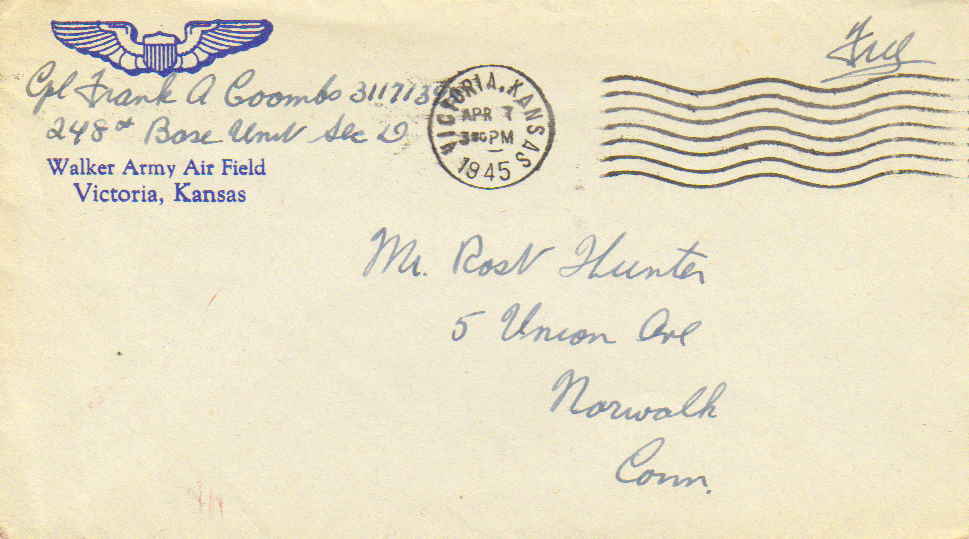 Free
Cpl Frank A Coombs 3117139
248th Base Unit Sec D
Walker Army Air Field
Victoria, Kansas
VICTORIA, KANSAS
APR 7
3 30 PM
1945
Mr. Robt Hunter
5 Union Ave
Norwalk
Conn.